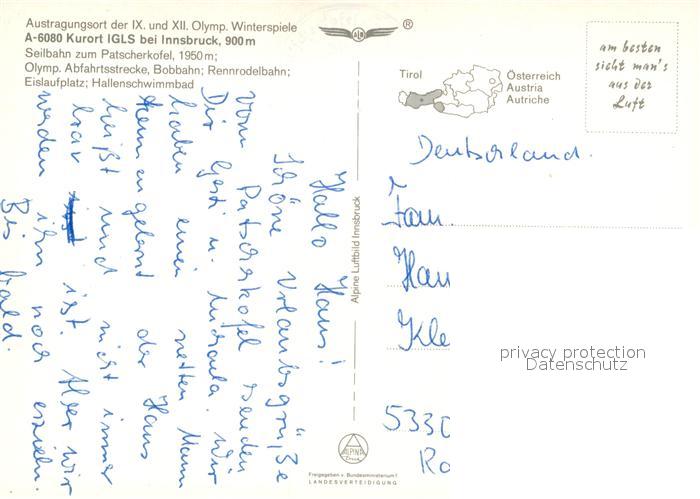 Austragungsort der IX. und XII. Olymp. Winterspiele
A-6080 Kurort IGLS bei Innsbruck, 900 m
Seilbahn zum Patscherkofel, 1950 m;
Olymp. Abfahrtsstrecke, Bobbahn; Rennrodelbahn;
Eislaufplatz; Hallenschwimmbad
®
Tirol
Österreich
Austria
Autriche
am besten
sieht man's
aus der
Luft
Hallo Hans!
Schöne Urlaubsgrüße
vom Patscherkofel senden
Dir Gerti u. Michaela. Wir
haben einen netten Mann
kennengelernt der Hans
heißt und nicht immer
brav ist. Aber wir
werden ihn noch erziehn.
Bis bald.
Alpine Luftbild Innsbruck
Deutschland.
Fam.
Han
Kle
533
Ro
privacy protection
Datenschutz
ALPINA
Freigegeben v. Bundesministerium f.
LANDESVERTEIDIGUNG